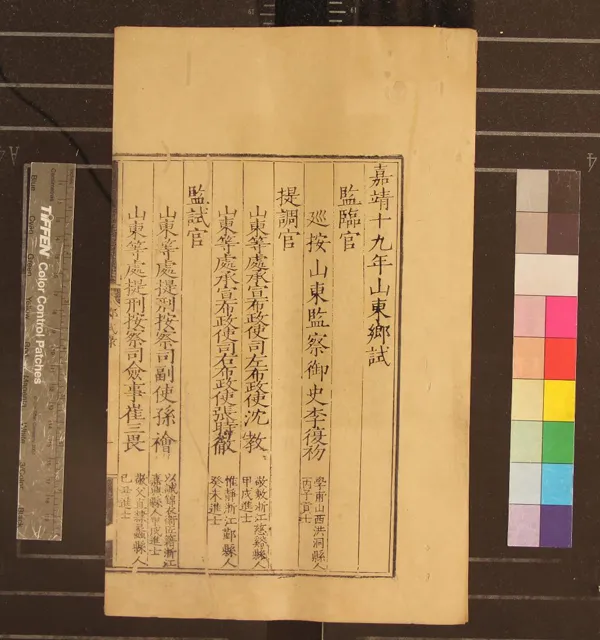 嘉靖十九年山東鄉試
監臨官
巡按山東監察御史李復初
學甫山西洪洞縣人
丙子貢士
提調官
山東等處承宣布政使司左布政使沈教
敬敷浙江慈谿縣人
甲戌進士
山東等處承宣布政使司右布政使張
惟靜浙江鄞縣人
癸未進士
監試官
山東等處提刑按察司副使孫襘
浙江
進士
山東等處提刑按察司僉事崔三畏
縣人
己丑進士
TIFFEN Color Control Patches
Blue
A4
4